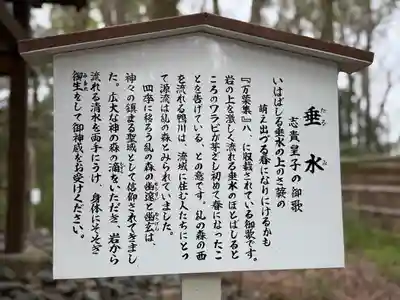 垂水
たるみ
志貴皇子の御歌
いはばしる垂水の上のさ蕨の
萌え出づる春になりにけるかも
『万葉集』八、に収載されている御歌です。
岩の上を激しく流れる垂水のほとばしると
ころのワラビが芽ざし初めて春になったこ
とを告げている、との意です。糺の森の西
を流れる鴨川は、流域に住む人たちにとっ
て源流は糺の森とみられていました。
四季に移ろう糺の森の幽遠と幽玄は、
神々の鎮まる聖域として信仰されてきまし
た。広大な神の森の滴をいただき、岩から
流れる清水を両手にうけ、身体にそそぎ
御生をして御神威をお受けください。